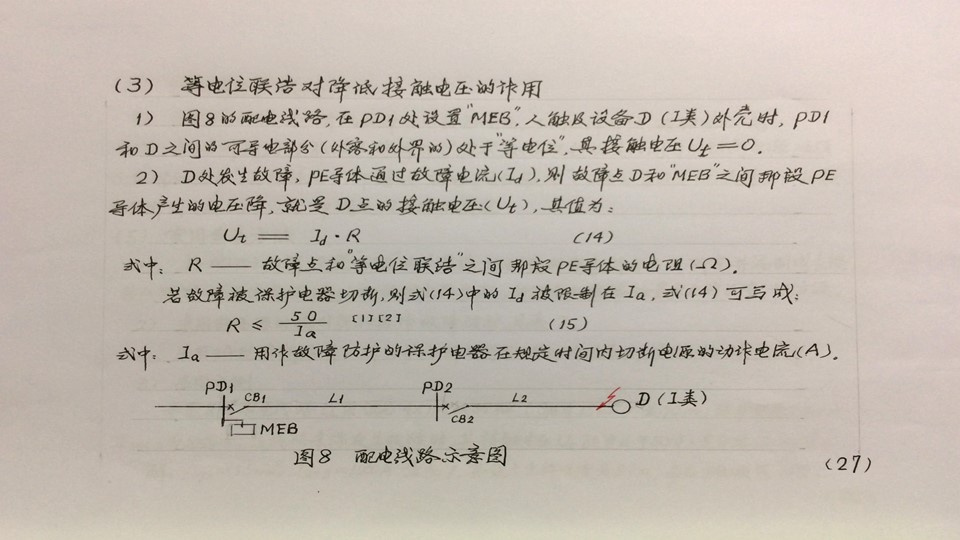 (3) 等电位联结对降低接触电压的作用
1) 图8的配电线路,在PD1处设置"MEB",人触及设备D(I类)外壳时,PD1
和D之间的可导电部分(外露和外界的)处于"等电位",其接触电压Ut=0.
2) D处发生故障,PE导体通过故障电流(Id),则故障点D和"MEB"之间那段PE
导体产生的电压降,就是D点的接触电压(Ut),其值为:
Ut = Id·R (14)
式中: R —— 故障点和"等电位联结"之间那段PE导体的电阻(Ω).
若故障被保护电器切断,则式(14)中的Id被限制在Ia,式(14)可写成:
R ≤ 50/Ia [1][2] (15)
式中: Ia —— 用作故障防护的保护电器在规定时间内切断电源的动作电流(A).
PD1 CB1 L1 PD2 CB2 L2 D(I类)
MEB
图8 配电线路示意图
(27)